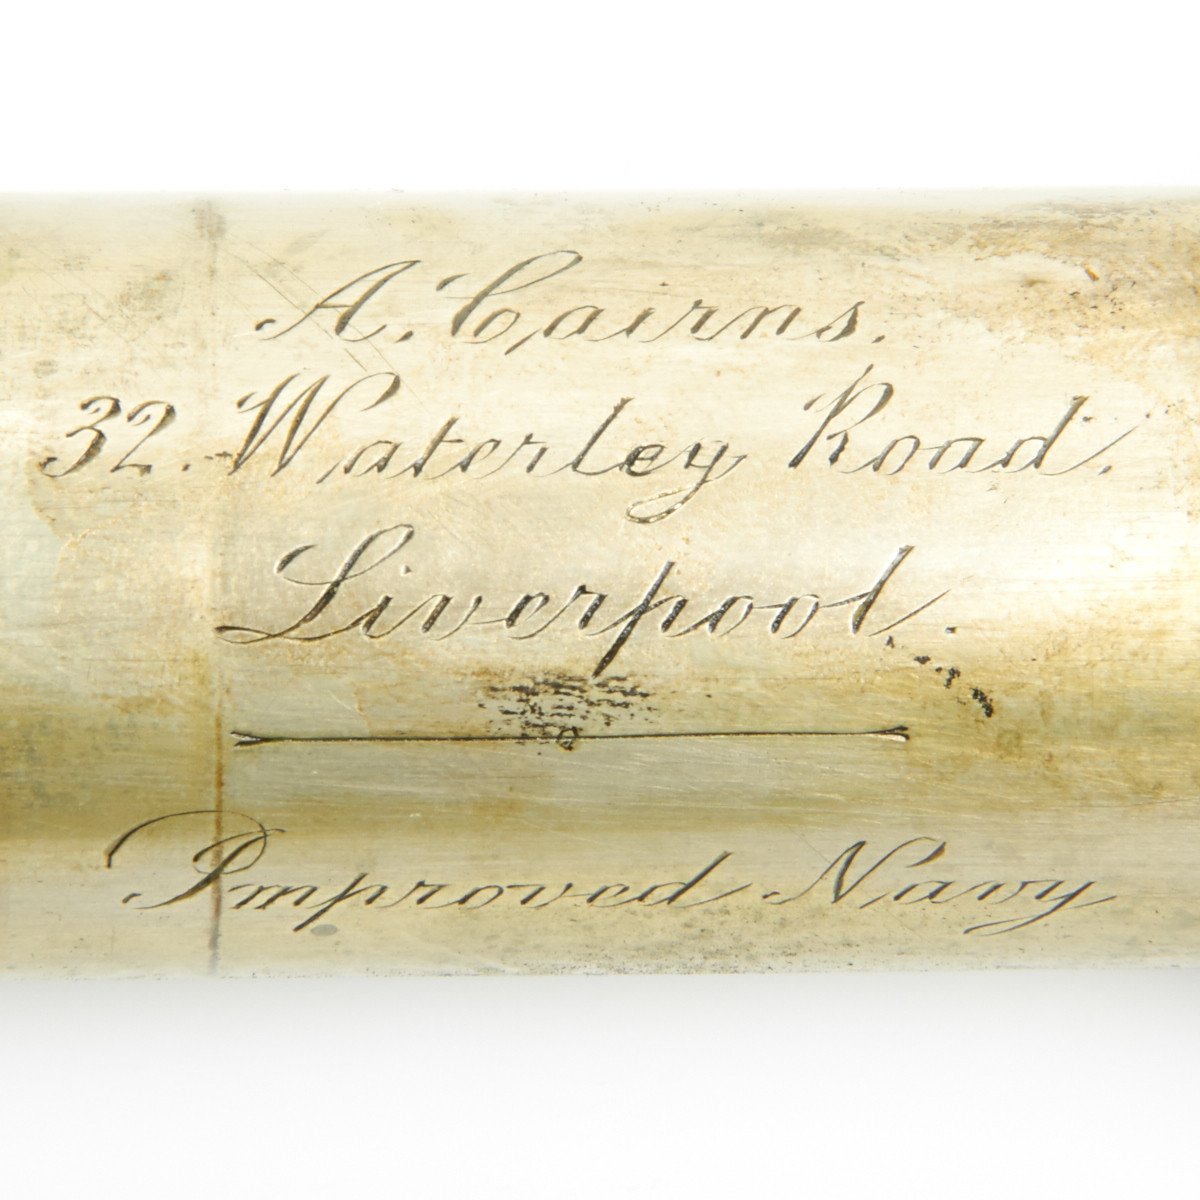 A. Cairns.
32. Waterley Road.
Liverpool.
Improved Navy